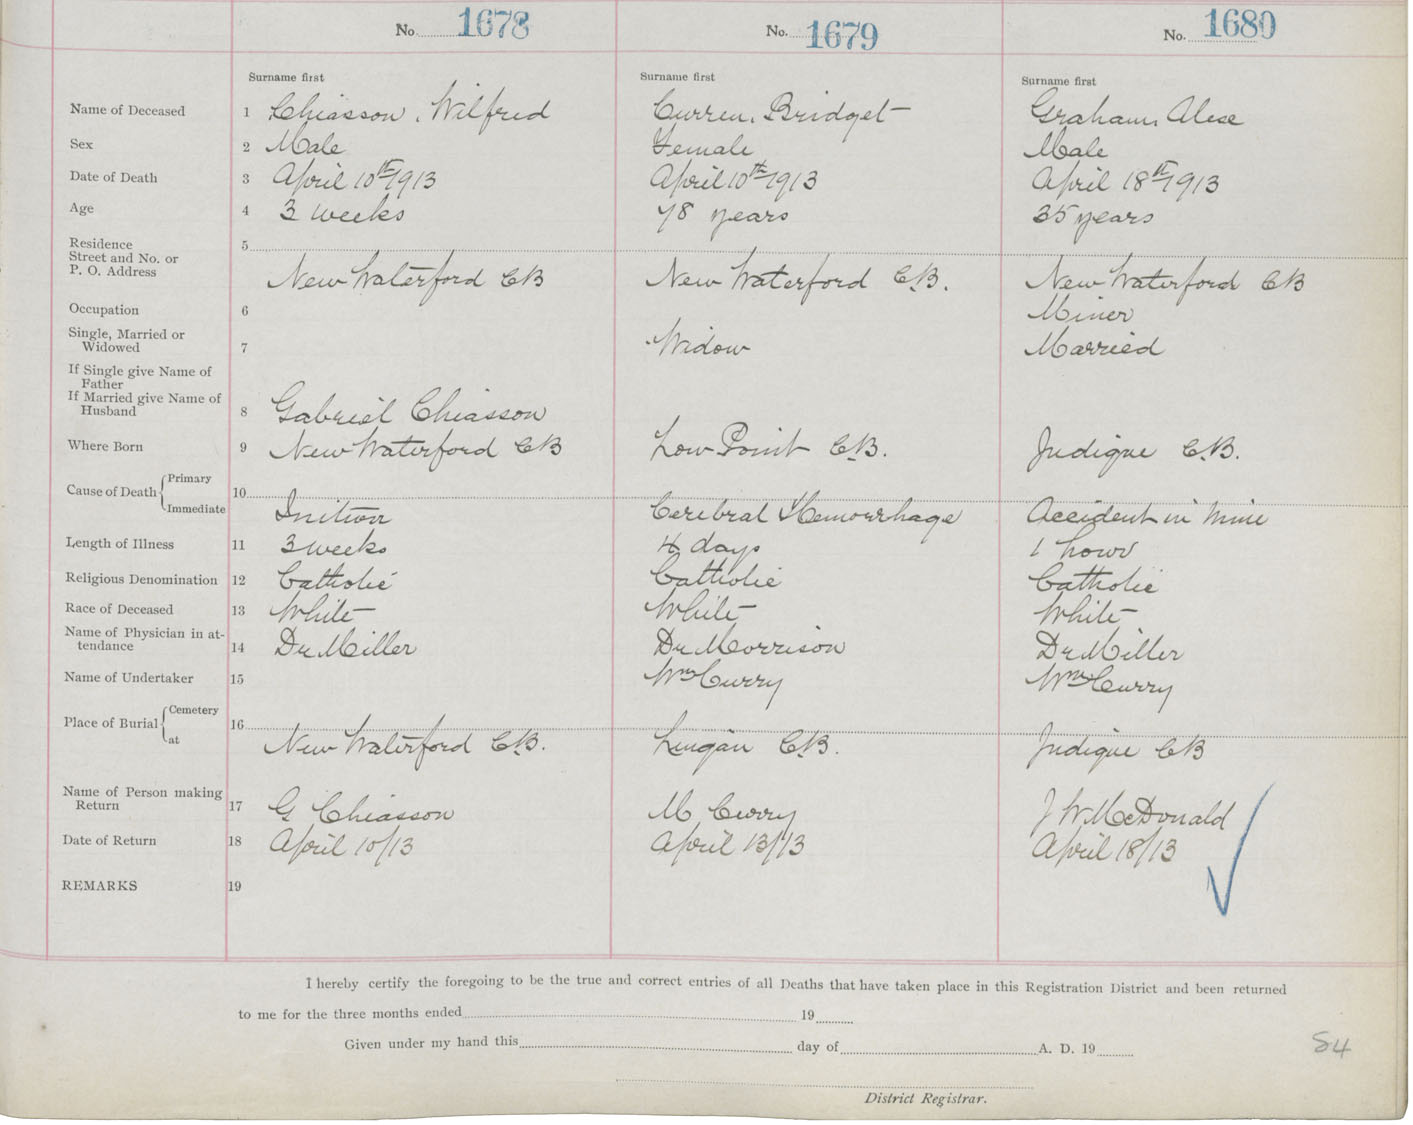 No. 1678 No. 1679 No. 1680
Surname first Surname first Surname first
Name of Deceased 1 Chiasson, Wilfred Curren, Bridget Graham,
Sex 2 Male Female Male
Date of Death 3 April 10th 1913 April 10th 1913 April 18th 1913
Age 4 3 weeks 78 years 35 years
Residence 5
Street and No. or
P. O. Address New Waterford CB New Waterford C.B. New Waterford CB
Occupation 6 Miner
Single, Married or
Widowed 7 Widow Married
If Single give Name of
Father
If Married give Name of
Husband 8 Gabriel Chiasson
Where Born 9 New Waterford CB Low Point C.B. Judique C.B.
Cause of Death Primary 10
Immediate Inition Cerebral Hemorrhage Accident in mine
Length of Illness 11 3 weeks 4 days 1 hour
Religious Denomination 12 Catholic Catholic Catholic
Race of Deceased 13 White White White
Name of Physician in at-
tendance 14 Dr Miller Dr Morrison Dr Miller
Name of Undertaker 15 Wm Curry Wm Curry
Place of Burial Cemetery 16
at New Waterford C.B. Lingan C.B. Judique CB
Name of Person making
Return 17 G Chiasson M Curry J W McDonald
Date of Return 18 April 10/13 April 13/13 April 18/13
REMARKS 19
I hereby certify the foregoing to be the true and correct entries of all Deaths that have taken place in this Registration District and been returned
to me for the three months ended 19
Given under my hand this day of A. D. 19
84
District Registrar.